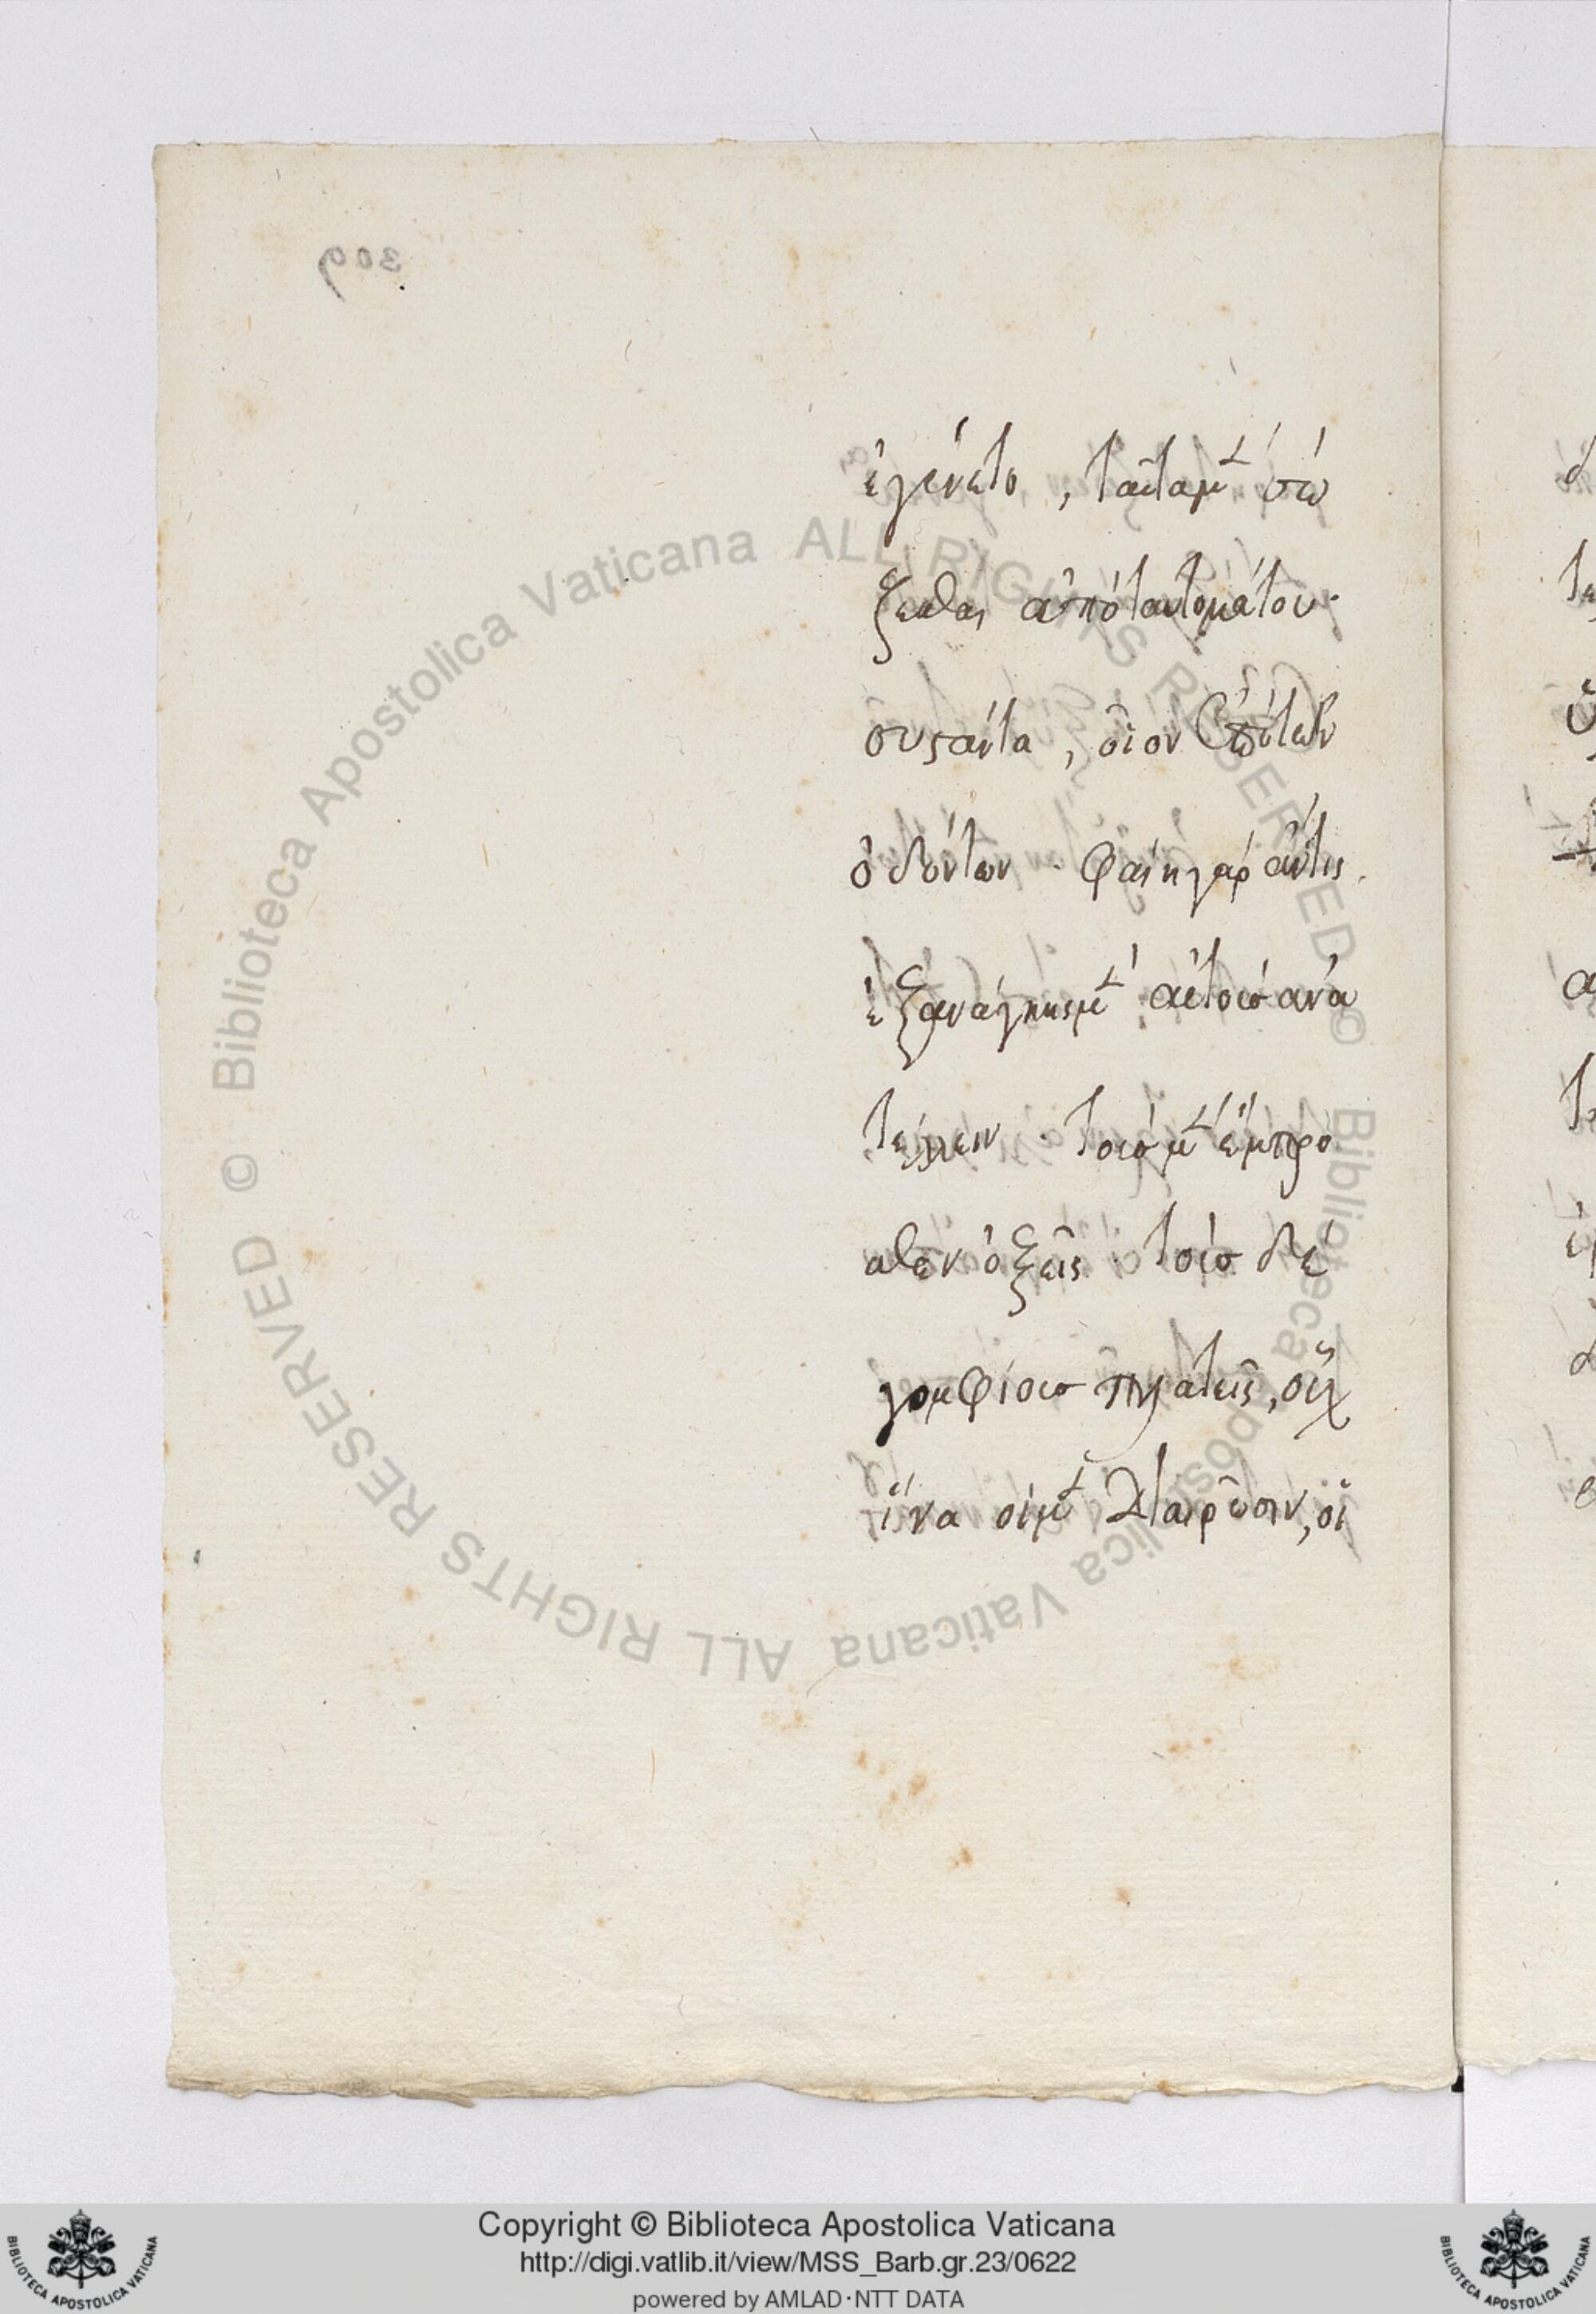 309
ἐγένετο, ταῦτα μὲν σώ
ζεσθαι ἀπὸ ταυτομάτου
συστάντα, οἷον ἐπὶ τῶν
ὀδόντων. φαίη γὰρ ἄν τις
ἐξ ἀνάγκης μὲν αὐτοὺσ ἀνα
τέλλειν. τοὺσ μὲν ἔμπρο
σθεν ὀξεῖς. τοὺσ δὲ
γομφίουσ πλατεῖς, οὐχ
ἵνα οἱ μὲν διαιρῶσιν, οἱ
© Biblioteca Apostolica Vaticana ALL RIGHTS RESERVED © Biblioteca Apostolica Vaticana ALL RIGHTS RESERVED
Copyright © Biblioteca Apostolica Vaticana
http://digi.vatlib.it/view/MSS_Barb.gr.23/0622
powered by AMLAD·NTT DATA
BIBLIOTECA APOSTOLICA VATICANA
BIBLIOTECA APOSTOLICA VATICANA